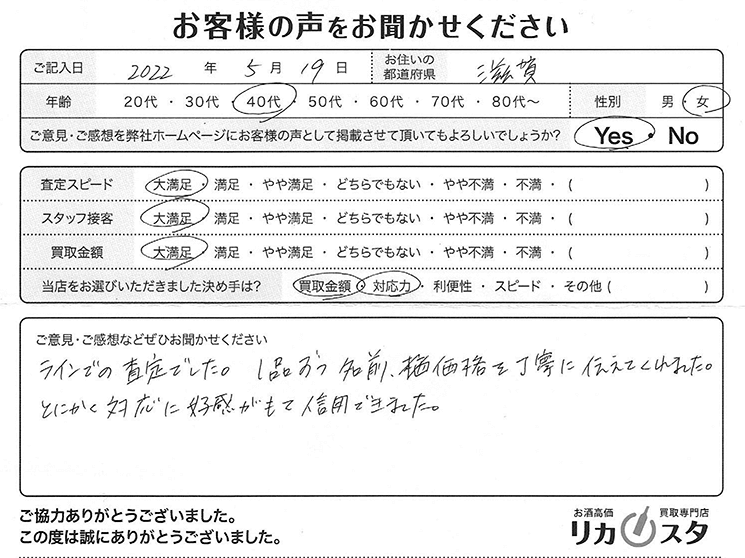 お客様の声をお聞かせください
ご記入日 2022 年 5 月 19 日 お住いの都道府県 滋賀
年齢 20代・30代・40代・50代・60代・70代・80代〜 性別 男・女
ご意見・ご感想を弊社ホームページにお客様の声として掲載させて頂いてもよろしいでしょうか? Yes・No
査定スピード 大満足・満足・やや満足・どちらでもない・やや不満・不満・( )
スタッフ接客 大満足・満足・やや満足・どちらでもない・やや不満・不満・( )
買取金額 大満足・満足・やや満足・どちらでもない・やや不満・不満・( )
当店をお選びいただきました決め手は? 買取金額・対応力・利便性・スピード・その他( )
ご意見・ご感想などぜひお聞かせください
ラインでの査定でした。1品ずつ名前、価格を丁寧に伝えてくれました。
とにかく対応に好感がもて信用できました。
ご協力ありがとうございました。
この度は誠にありがとうございました。
お酒高価 買取専門店
リカスタ